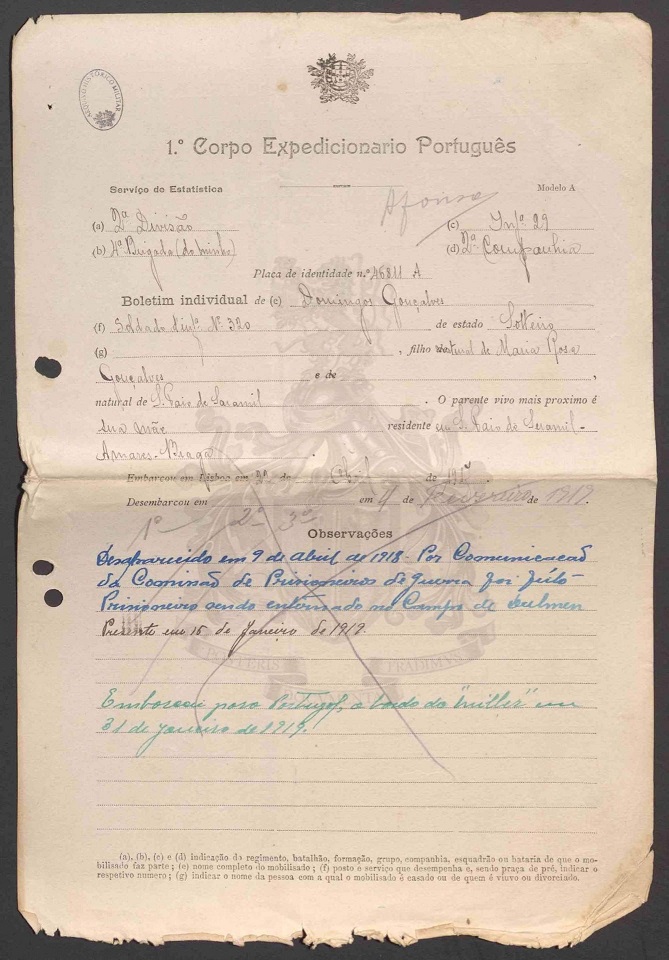 ARQUIVO HISTÓRICO MILITAR
1.º Corpo Expedicionario Português
Serviço de Estatistica
Modelo A
Afonso
(a) 2ª Divisão (c) Infª 29
(b) 4ª Brigada (do minho) (d) 2ª Companhia
Placa de identidade n.º 46811 A
Boletim individual de (e) Domingos Gonçalves
(f) Soldado Nº 320 de estado Solteiro
(g) , filho de Maria Rosa
Gonçalves e de ,
natural de S. Paio de Saramil . O parente vivo mais proximo é
sua mãe residente em S. Paio de Seramil -
Amares - Braga .
Embarcou em Lisboa em 22 de Abril de
Desembarcou em em 4 de Fevereiro de 1919.
1º 2º 3º
Observações
Desaparecido em 9 de Abril de 1918 - Por Comunicacaõ
da Comissão de Prisioneiros de guerra foi feito
Prisioneiro sendo internado no Campo de Dulmen
Presente em 15 de Janeiro de 1919.
POSTERIS TRADIMVS
Embarcou para Portugal, a bordo do em
31 de Janeiro de 1919.
(a), (b), (c) e (d) indicação do regimento, batalhão, formação, grupo, companhia, esquadrão ou bataria de que o mo-
bilisado faz parte; (e) nome completo do mobilisado; (f) posto e serviço que desempenha e, sendo praça de pré, indicar o
respetivo numero; (g) indicar o nome da pessoa com a qual o mobilisado é casado ou de quem é viuvo ou divorciado.